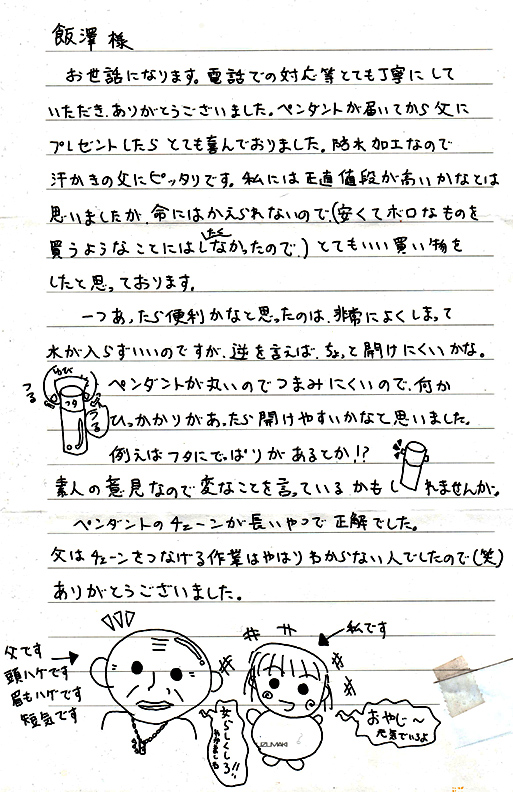 飯澤 様
お世話になります。電話での対応等とても丁寧にして
いただき、ありがとうございました。ペンダントが届いてから父に
プレゼントしたらとても喜んでおりました。防水加工なので
汗かきの父にピッタリです。私には正直値段が高いかなとは
思いましたが、命にはかえられないので、(安くてボロなものを
買うようなことにはしたくなかったので、)とてもいい買い物を
したと思っております。
一つあったら便利かなと思ったのは、非常によくしまって
水が入らずいいのですが、逆を言えば、ちょっと開けにくいかな。
ペンダントが丸いのでつまみにくいので、何か
ひっかかりがあったら開けやすいかなと思いました。
例えばフタにでっぱりがあるとか!?
素人の意見なので変なことを言っているかもしれませんが。
ペンダントのチェーンが長いやつで正解でした。
父はチェーンをつなげる作業はやはりわからない人でしたので(笑)
ありがとうございました。
ゆび
つる
フタ
つる
私です
父です
頭ハゲです
眉もハゲです
短気です
女らしくしろ!!
おやじ〜
元気でいろよ
IZUMAKI